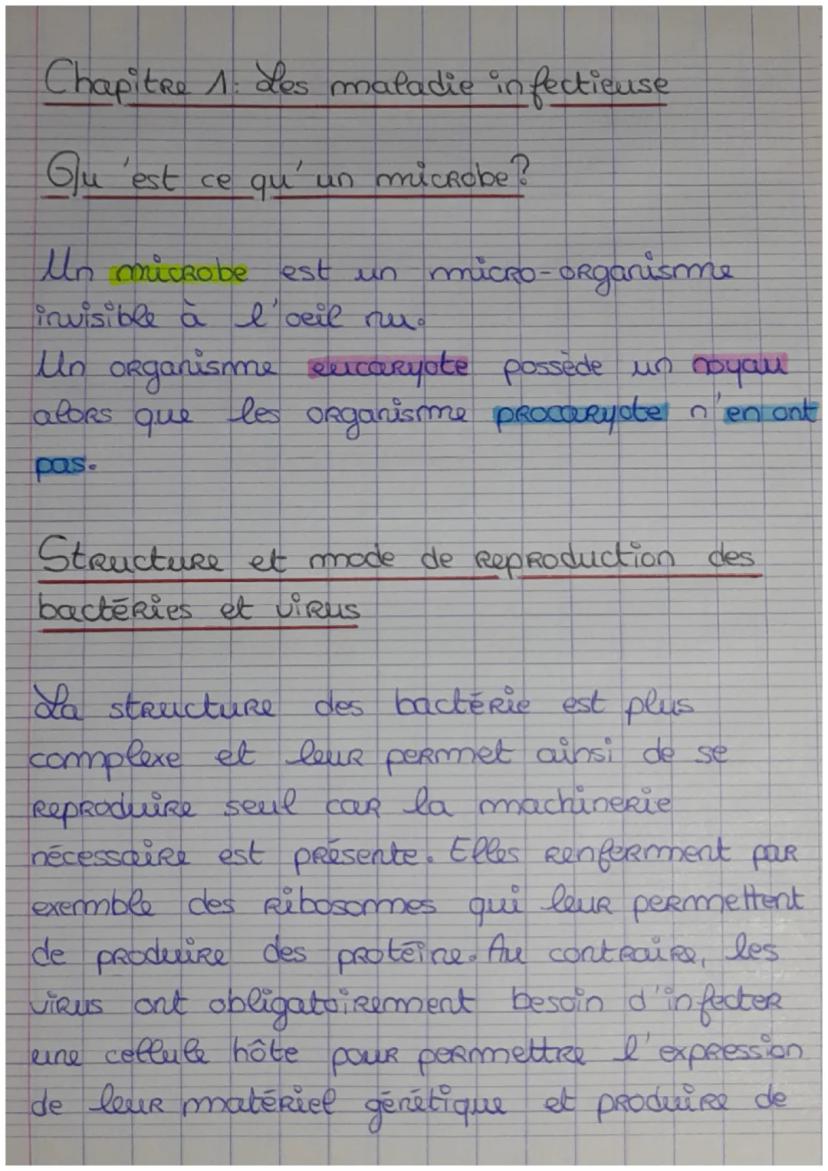 Chapitre 1: Les maladie infectieuse
Qu'est ce qu'un microbe?
Un microbe est un micro-organisme
invisible à l'oeil nu.
Un organisme eucaryote possède un noyau
alors que les organisme procaryote n'en ont
pas.
Structure et mode de reproduction des
bactéries et virus
La structure des bactérie est plus
complexe et leur permet ainsi de se
reproduire seul car la machinerie
nécessaire est présente. Elles renferment par
exemmble des ribosomes qui leur permettent
de produire des protéine. Au contraire, les
virus ont obligatoirement besoin d'infecter
une cellule hôte pour permettre l'expression
de leur matériel génétique et produire de